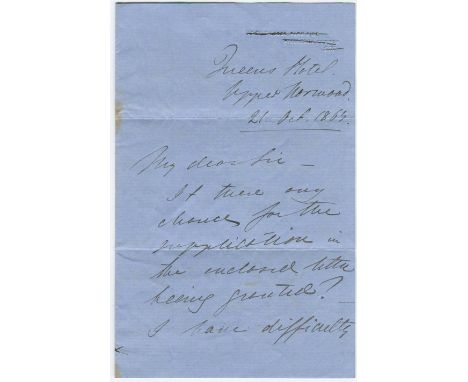 Queens Hotel.
Upper Norwood.
21 Oct. 1864.
My dear Sir –
Is there any
chance for the
supplication in
the enclosed letter
being granted?
I have difficulty